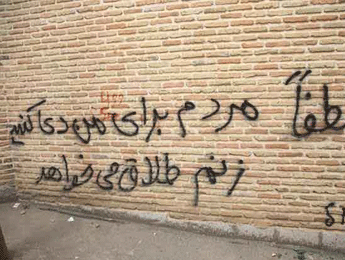 لطفاً مردم برای من دعا کنید
زنم طلاق می خواهد